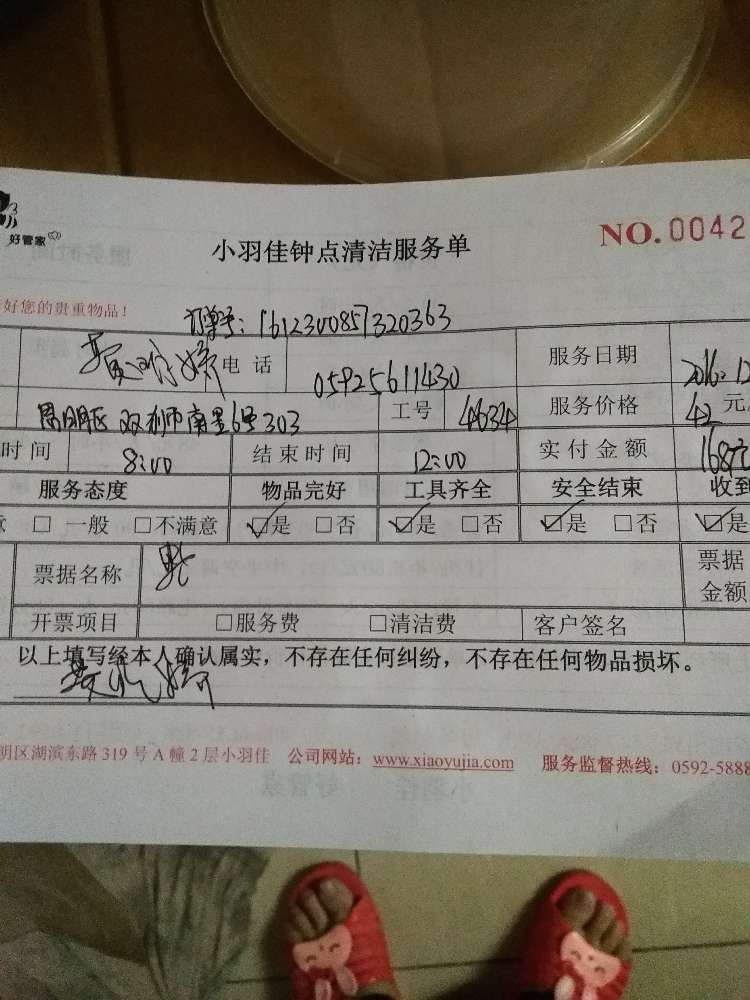 好管家
小羽佳钟点清洁服务单
NO. 0042
好您的贵重物品!
订单号: 1612300857320363
电话 05925611430 服务日期 2016.12
思明区 双狮南里6号303 工号 4634 服务价格 42 元/
时间 8:00 结束时间 12:00 实付金额 168元
服务态度 物品完好 工具齐全 安全结束 收到
□ 一般 □不满意 ☑是 □否 ☑是 □否 ☑是 □否 ☑是
票据名称 票据
金额
开票项目 □服务费 □清洁费 客户签名
以上填写经本人确认属实，不存在任何纠纷，不存在任何物品损坏。
明区湖滨东路 319 号 A 幢 2 层小羽佳 公司网站: www.xiaoyujia.com 服务监督热线: 0592-5888